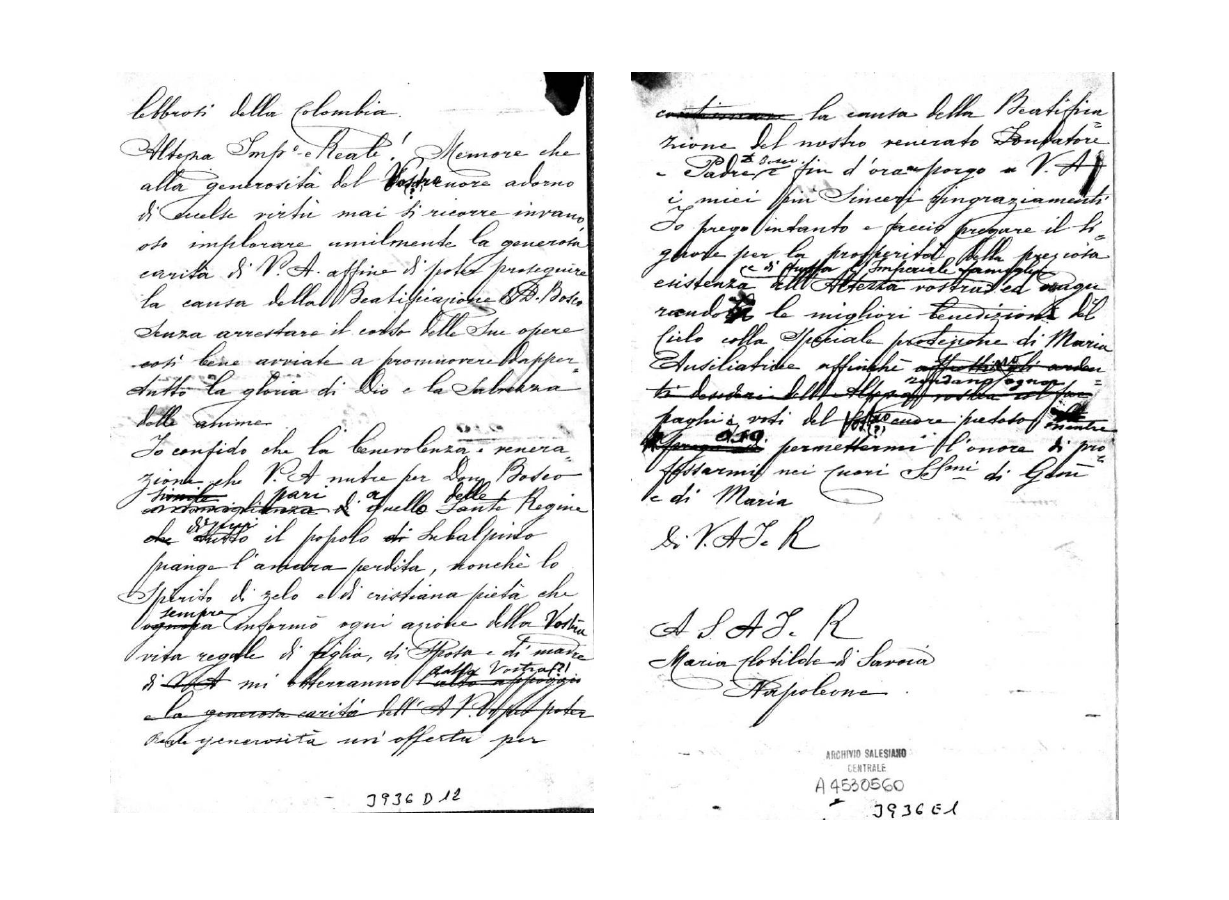 lebbrosi della Colombia.
Altezza Imp.e e Reale! Memore che
alla generosità del Vostro cuore adorno
di scelse virtù mai si ricorre invano,
oso implorare umilmente la generosa
carità di V. A. affine di poter proseguire
la causa della Beatificazione di D. Bosco
senza arrestare il corso delle sue opere
così bene avviate a promuovere dapper-
tutto la gloria di Dio e la salvezza
delle anime.
Io confido che la benevolenza e venera-
zione che V. A nutre per Don Bosco
simile pari a delle
di quello Sante Regine
di cui
che tutto il popolo di Subalpino
piange l'amara perdita, nonchè lo
Spirito di zelo e di cristiana pietà che
sempre
ognora informò ogni azione della Vostra
vita regale di figlia, di Sposa e di madre
dalla Vostra (?)
di V. A mi otterranno alto appoggio
e la generosa carità dell' A V. poter
Reale generosità un' offerta per
J936 D 12
continuare la causa della Beatifica-
zione del nostro venerato Fondatore
e Padre fin d'ora porgo a V. A
i miei più sinceri ringraziamenti
Io prego intanto e faccio pregare il Si-
gnore per la prosperità della preziosa
e di tutta l'Imperiale famiglia
esistenza all'Altezza vostra ed augu
rando le migliori benedizioni del
Cielo colla speciale protezione di Maria
Ausiliatrice affinchè gli arden-
rendano ognor
ti desideri dell' Altezza vostra
paghi i voti del Vostro cuore pietoso mentre
oso permettermi l'onore di pro-
fessarmi nei cuori SSmi di Gesù
e di Maria
Di V. A I. e R
A S A I. e R
Maria Clotilde di Savoia
Napoleone
ARCHIVIO SALESIANO
CENTRALE
A 4530560
J936 E 1